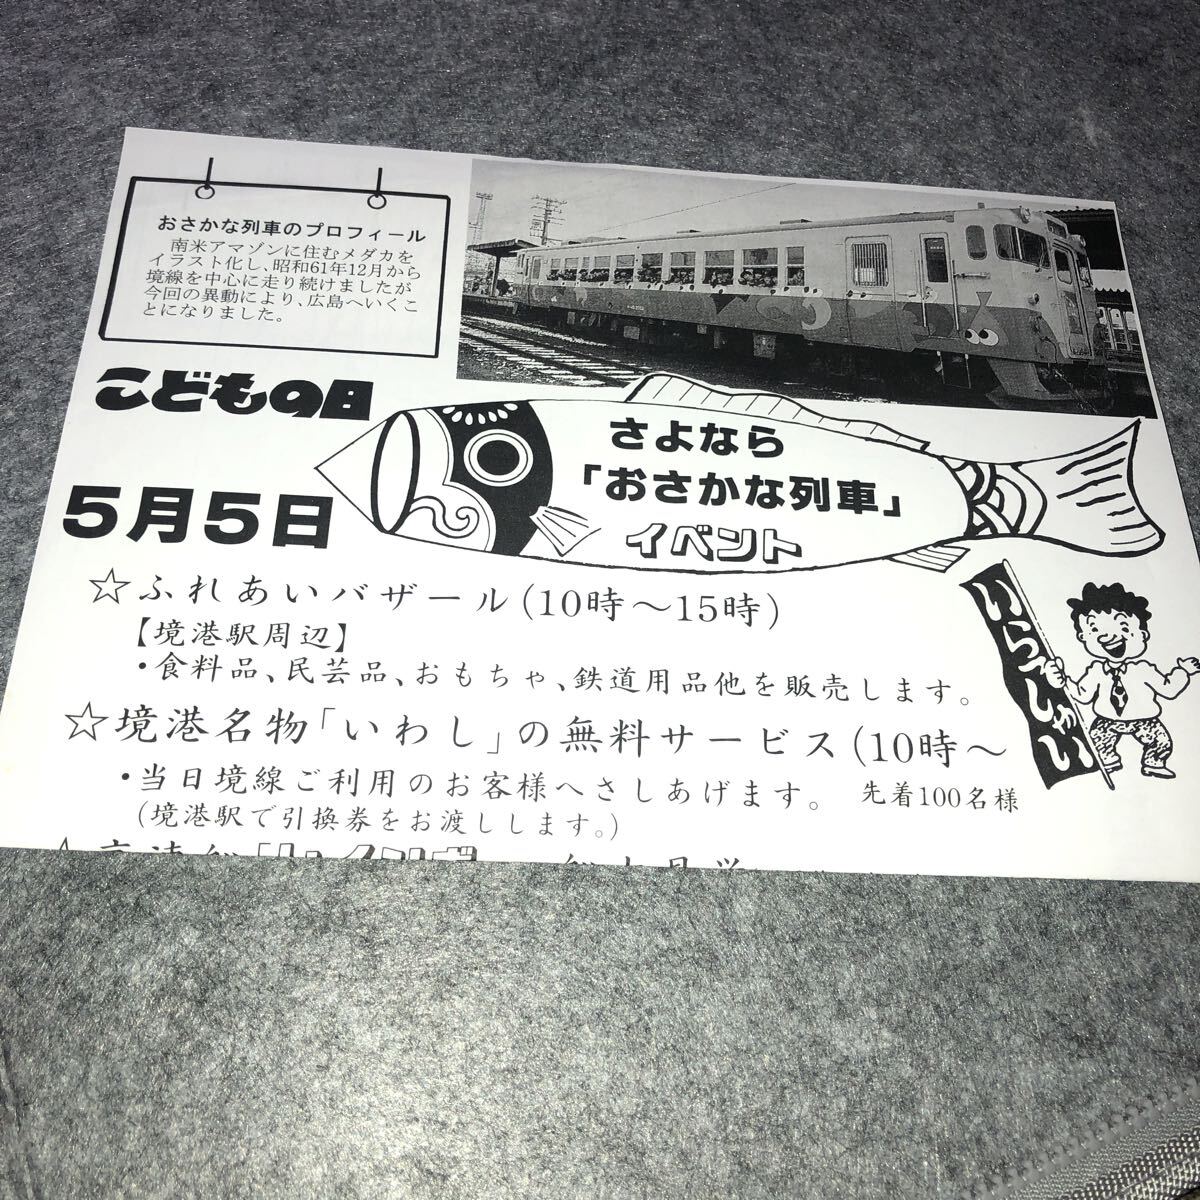 おさかな列車のプロフィール
南米アマゾンに住むメダカを
イラスト化し、昭和61年12月から
境線を中心に走り続けましたが
今回の異動により、広島へいくこ
とになりました。
こどもの日
5月5日
さよなら
「おさかな列車」
イベント
☆ふれあいバザール(10時～15時)
【境港駅周辺】
・食料品、民芸品、おもちゃ、鉄道用品他を販売します。
いらっしゃい
☆境港名物「いわし」の無料サービス(10時～
・当日境線ご利用のお客様へさしあげます。 先着100名様
(境港駅で引換券をお渡しします。)